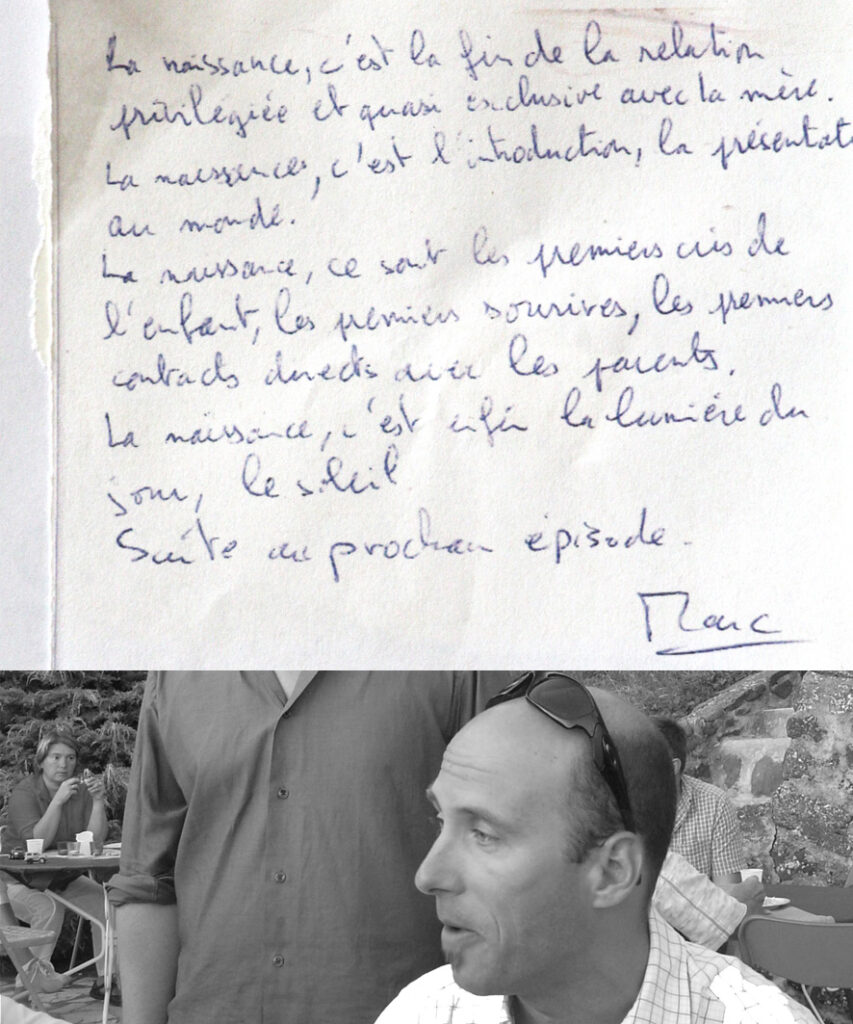 La naissance, c'est la fin de la relation
privilégiée et quasi exclusive avec la mère.
La naissance, c'est l'introduction, la présentat
au monde.
La naissance, ce sont les premiers cris de
l'enfant, les premiers sourires, les premiers
contacts directs avec les parents.
La naissance, c'est enfin la lumière du
jour, le soleil
Suite au prochain épisode.
Marc